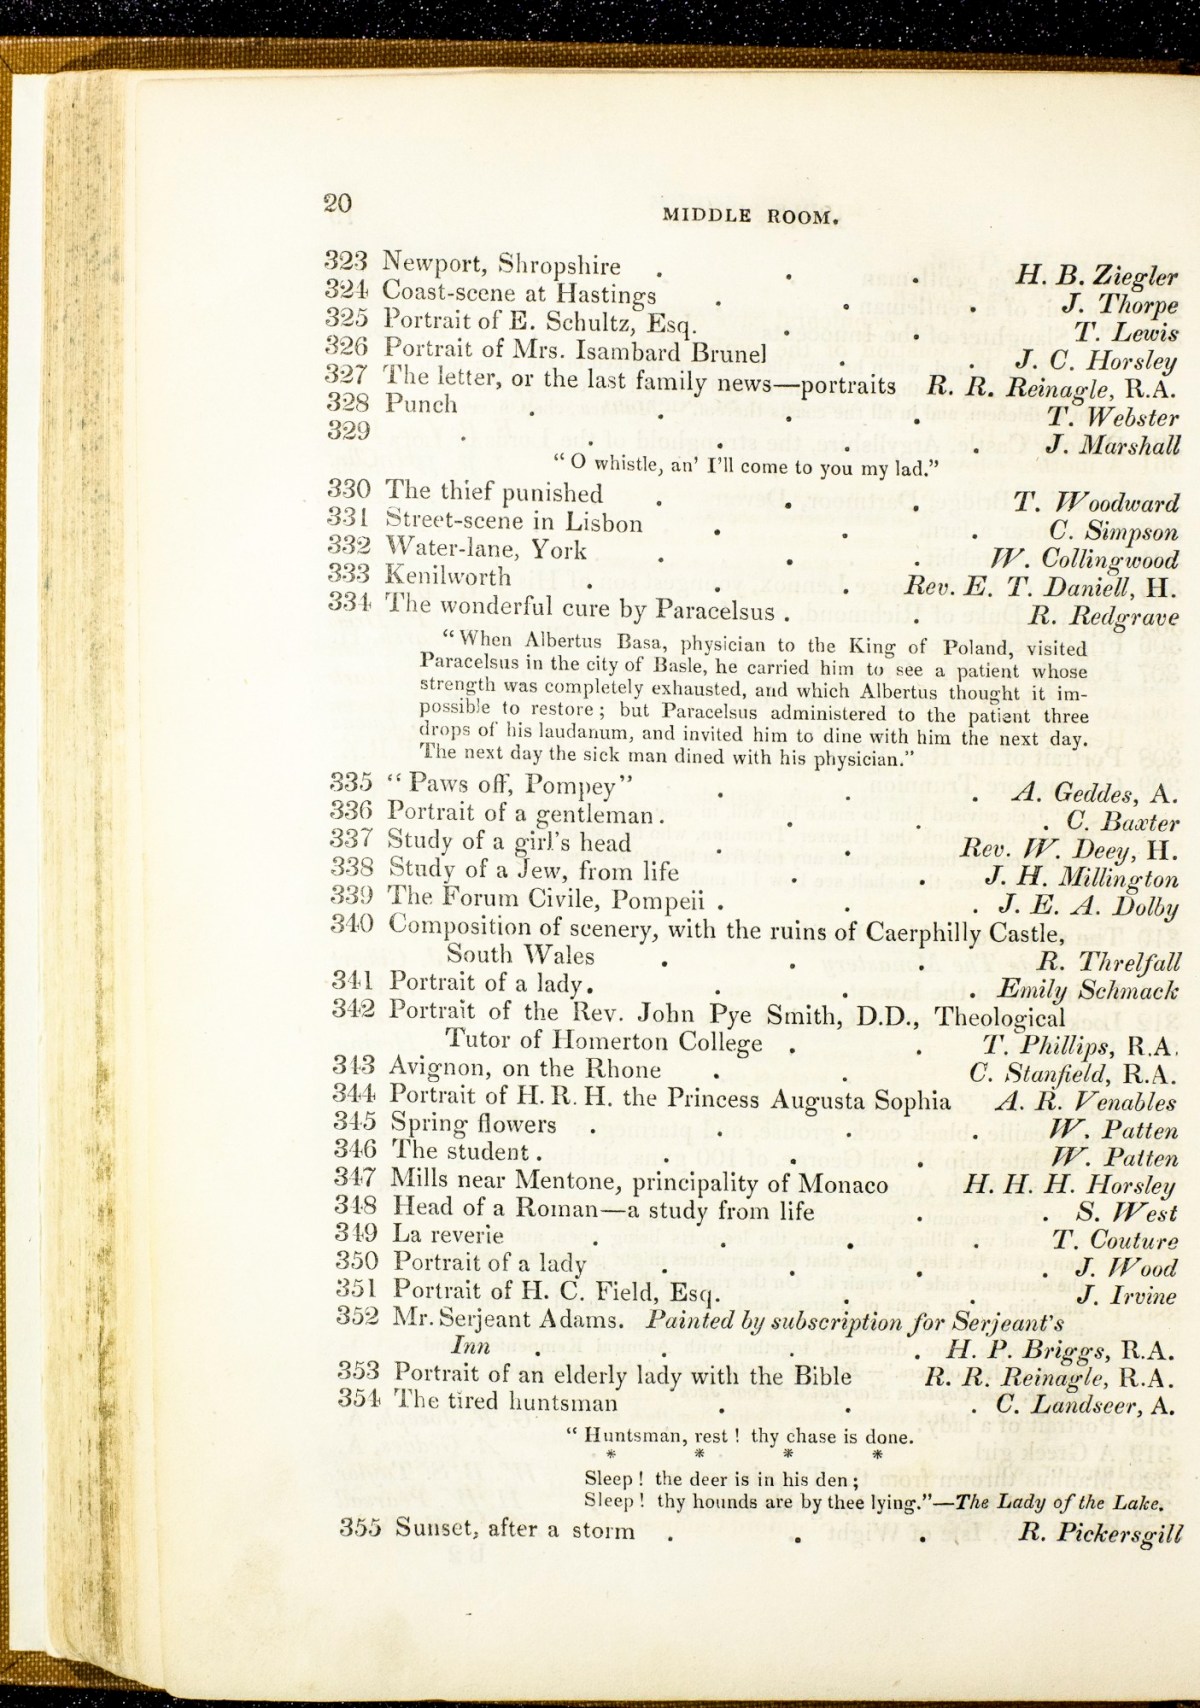 20
MIDDLE ROOM.
323 Newport, Shropshire . . . H. B. Ziegler
324 Coast-scene at Hastings . . . J. Thorpe
325 Portrait of E. Schultz, Esq. . . T. Lewis
326 Portrait of Mrs. Isambard Brunel . . J. C. Horsley
327 The letter, or the last family news—portraits R. R. Reinagle, R.A.
328 Punch . . . . T. Webster
329 . . . . . J. Marshall
“O whistle, an’ I’ll come to you my lad.”
330 The thief punished . . . T. Woodward
331 Street-scene in Lisbon . . . C. Simpson
332 Water-lane, York . . . W. Collingwood
333 Kenilworth . . . Rev. E. T. Daniell, H.
334 The wonderful cure by Paracelsus . . R. Redgrave
“When Albertus Basa, physician to the King of Poland, visited
Paracelsus in the city of Basle, he carried him to see a patient whose
strength was completely exhausted, and which Albertus thought it im-
possible to restore; but Paracelsus administered to the patient three
drops of his laudanum, and invited him to dine with him the next day.
The next day the sick man dined with his physician.”
335 “Paws off, Pompey” . . . A. Geddes, A.
336 Portrait of a gentleman . . . . C. Baxter
337 Study of a girl’s head . . Rev. W. Deey, H.
338 Study of a Jew, from life . . J. H. Millington
339 The Forum Civile, Pompeii . . . J. E. A. Dolby
340 Composition of scenery, with the ruins of Caerphilly Castle,
South Wales . . . R. Threlfall
341 Portrait of a lady. . . . Emily Schmack
342 Portrait of the Rev. John Pye Smith, D.D., Theological
Tutor of Homerton College . . T. Phillips, R.A.
343 Avignon, on the Rhone . . C. Stanfield, R.A.
344 Portrait of H. R. H. the Princess Augusta Sophia A. R. Venables
345 Spring flowers . . . . W. Patten
346 The student . . . . W. Patten
347 Mills near Mentone, principality of Monaco H. H. H. Horsley
348 Head of a Roman—a study from life . . S. West
349 La reverie . . . . T. Couture
350 Portrait of a lady . . . . J. Wood
351 Portrait of H. C. Field, Esq. . . J. Irvine
352 Mr. Serjeant Adams. Painted by subscription for Serjeant’s
Inn . . . H. P. Briggs, R.A.
353 Portrait of an elderly lady with the Bible R. R. Reinagle, R.A.
354 The tired huntsman . . . C. Landseer, A.
“Huntsman, rest! thy chase is done.
* * * *
Sleep! the deer is in his den;
Sleep! thy hounds are by thee lying.”—The Lady of the Lake.
355 Sunset, after a storm . . . R. Pickersgill